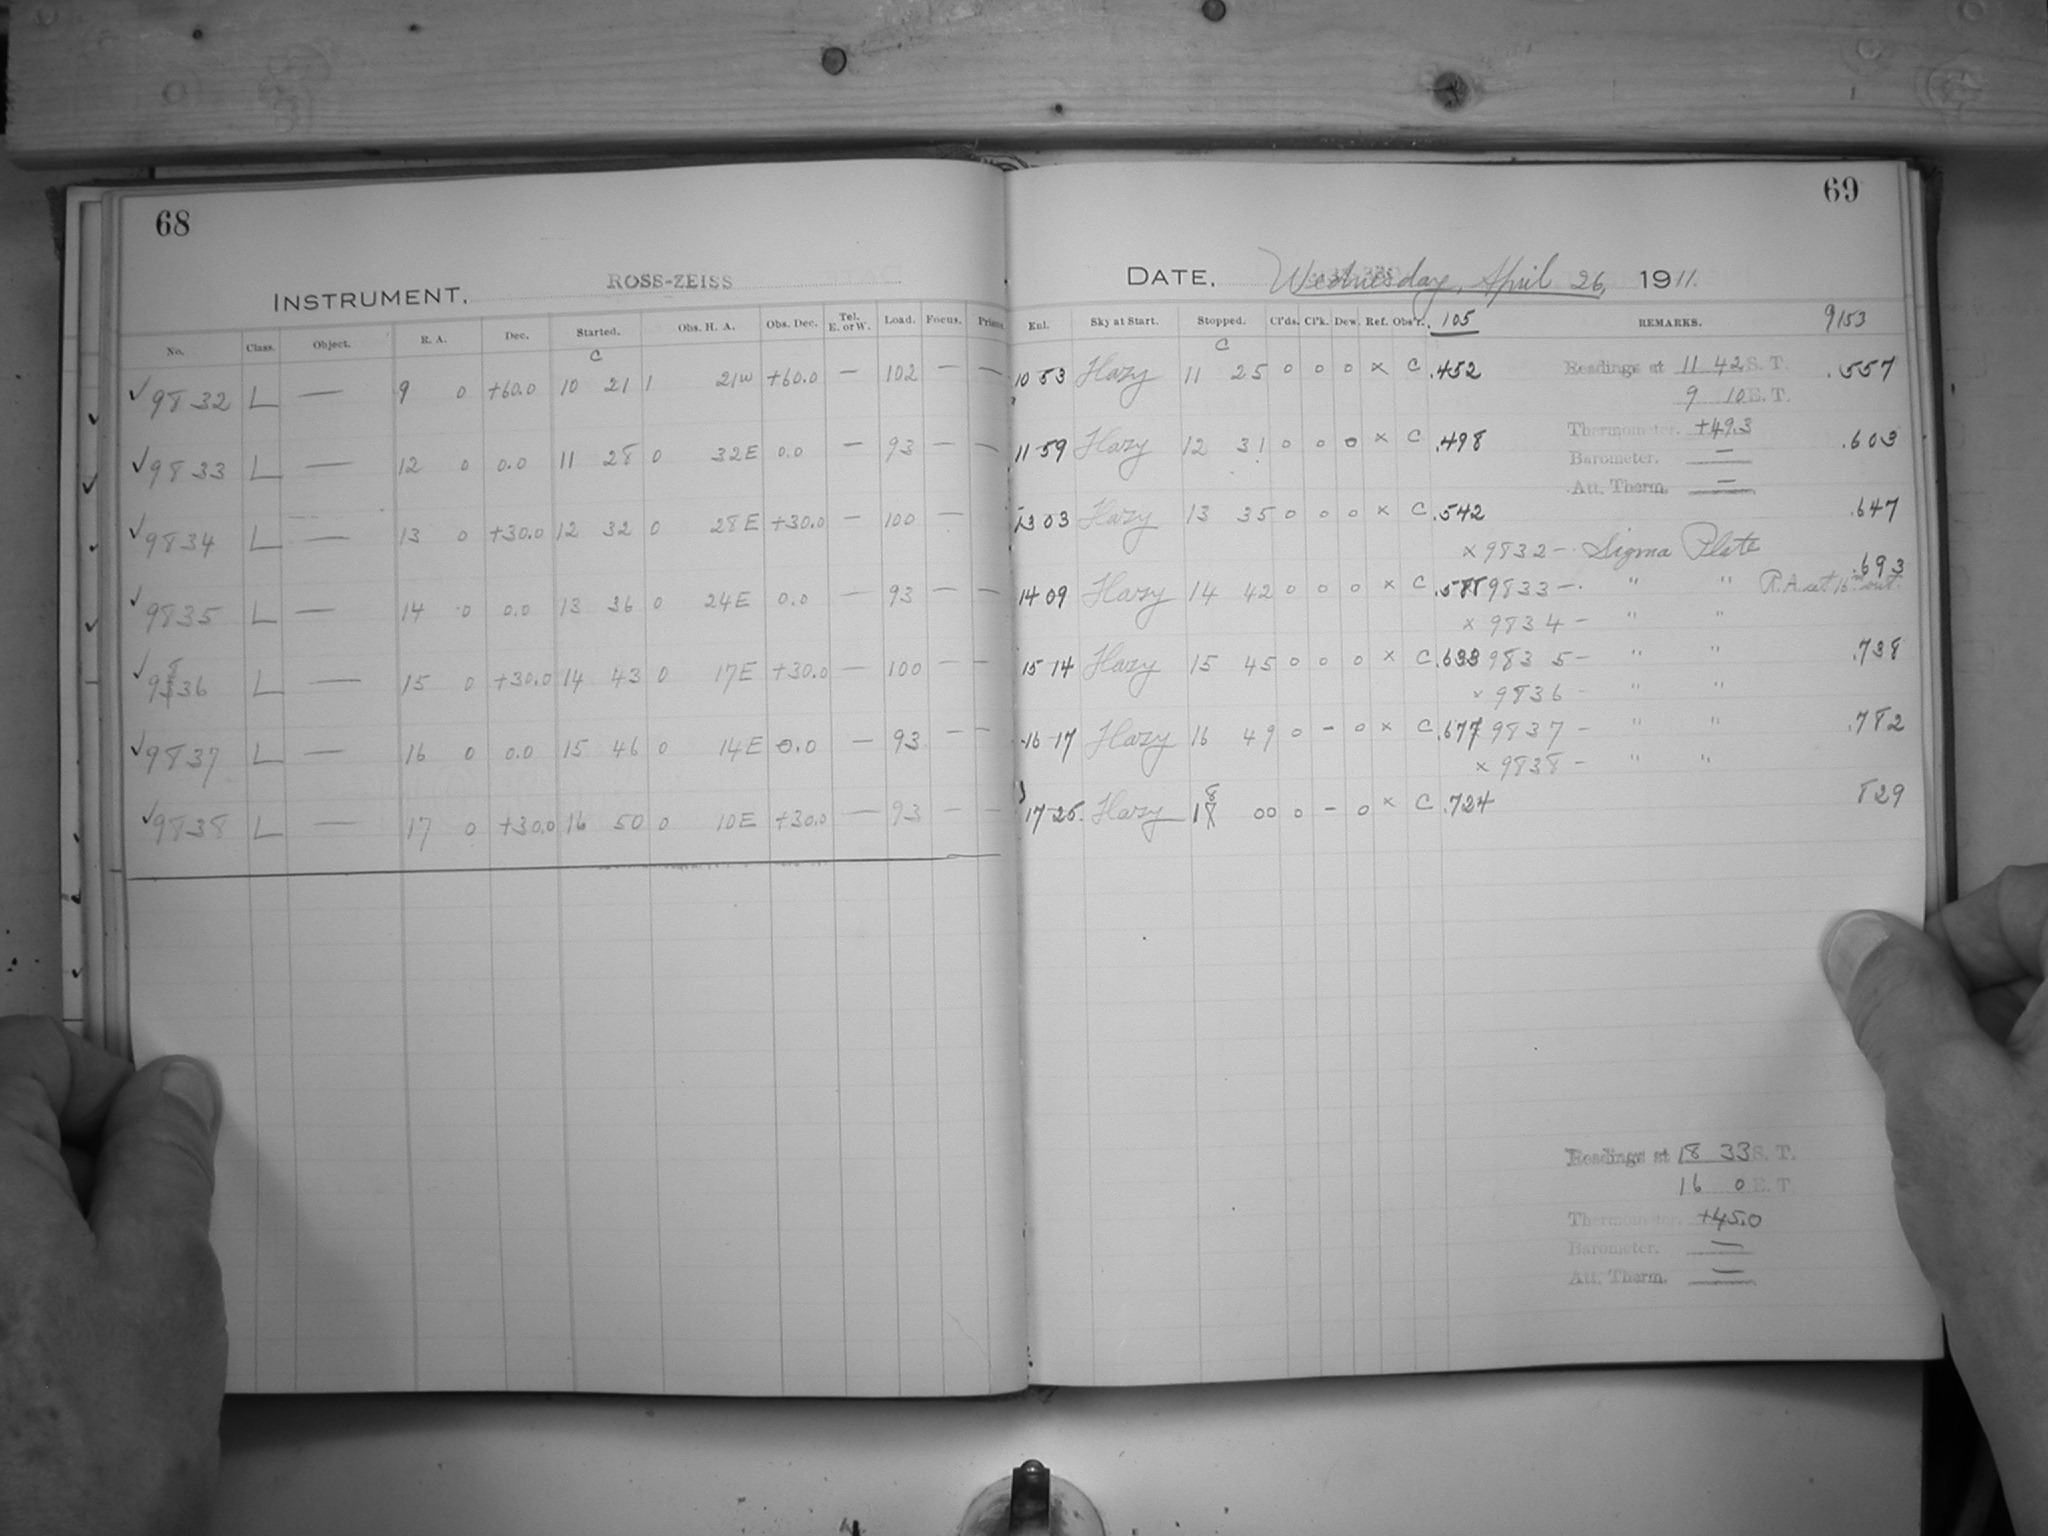 68
INSTRUMENT, ROSS-ZEISS
No. Class. Object. R. A. Dec. Started. Obs. H. A. Obs. Dec. Tel. E. or W. Load. Focus. Prism
C
✓ 9832 L — 9 0 +60.0 10 21 1 21W +60.0 — 102 — —
✓ 9833 L — 12 0 0.0 11 28 0 32E 0.0 — 93 — —
✓ 9834 L — 13 0 +30.0 12 32 0 28E +30.0 — 100 — —
✓ 9835 L — 14 0 0.0 13 36 0 24E 0.0 — 93 — —
✓ 9836 L — 15 0 +30.0 14 43 0 17E +30.0 — 100 — —
✓ 9837 L — 16 0 0.0 15 46 0 14E 0.0 — 93 — —
✓ 9838 L — 17 0 +30.0 16 50 0 10E +30.0 — 93 — —
69
DATE, Wednesday, April 26, 1911.
Exl. Sky at Start. Stopped. Cl'ds. Cl'k. Dew. Ref. Obs'r. .105 REMARKS. 9153
C
10 53 Hazy 11 25 0 0 0 x C .452 Readings at 11 42 S. T. .557
9 10 E. T.
Thermometer. +49.3
11 59 Hazy 12 31 0 0 0 x C .498 .603
Barometer. —
Att. Therm. —
13 03 Hazy 13 35 0 0 0 x C .542 .647
x 9832 — Sigma Plate
.693
14 09 Hazy 14 42 0 0 0 x C .588 9833 — " " R.A. set 16m out.
x 9834 — " "
15 14 Hazy 15 45 0 0 0 x C .633 9835 — " " .738
x 9836 — " "
16 17 Hazy 16 49 0 - 0 x C .677 9837 — " " .782
x 9838 — " "
17 25 Hazy 18 00 0 - 0 x C .724 829
Readings at 18 33 S. T.
16 0 E. T.
Thermometer. +45.0
Barometer. —
Att. Therm. —